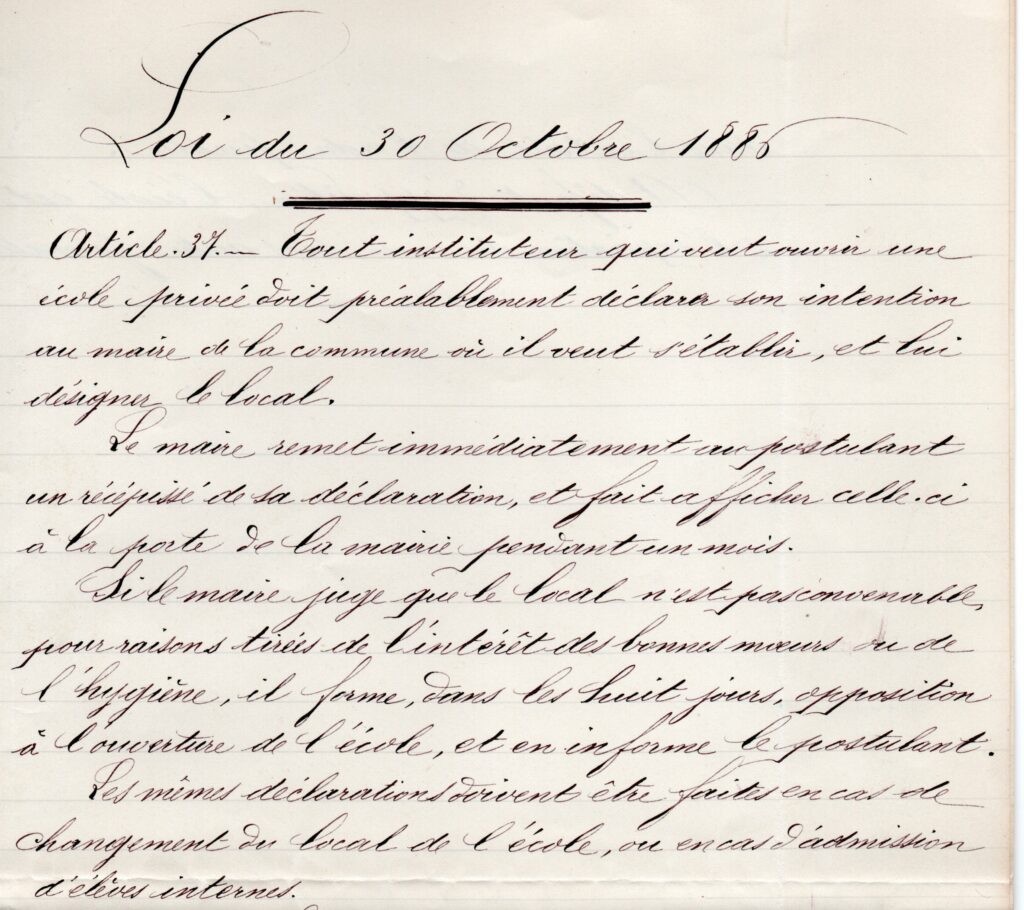 Loi du 30 Octobre 1886
Article.37.— Tout instituteur qui veut ouvrir une
école privée doit préalablement déclarer son intention
au maire de la commune où il veut s'établir, et lui
désigner le local.
Le maire remet immédiatement au postulant
un récépissé de sa déclaration, et fait afficher celle-ci
à la porte de la mairie pendant un mois.
Si le maire juge que le local n'est pas convenable,
pour raisons tirées de l'intérêt des bonnes mœurs ou de
l'hygiène, il forme, dans les huit jours, opposition
à l'ouverture de l'école, et en informe le postulant.
Les mêmes déclarations doivent être faites en cas de
changement du local de l'école, ou en cas d'admission
d'élèves internes.